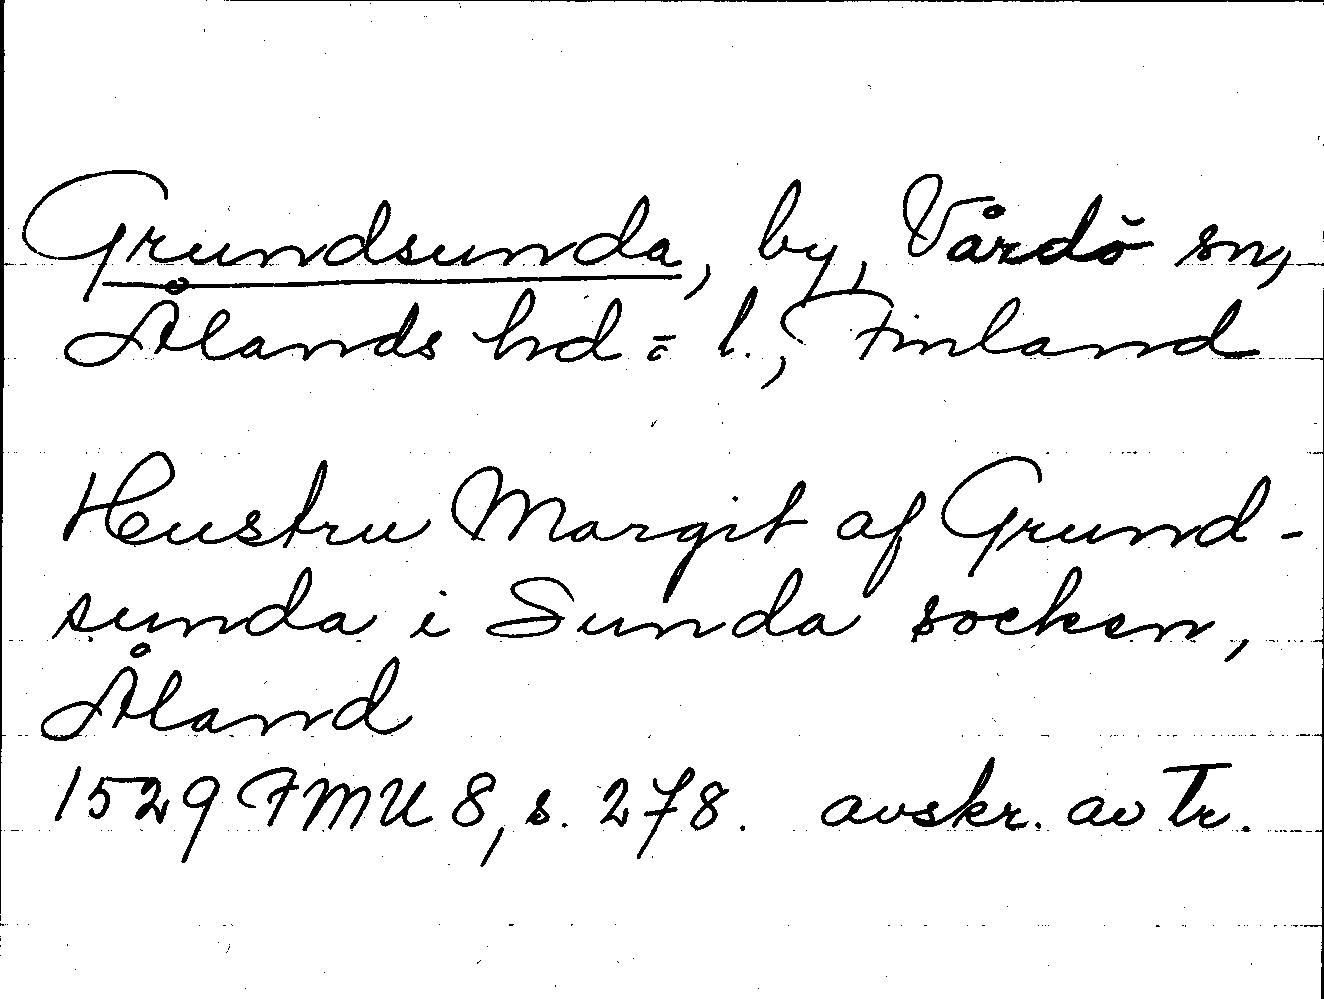 Grundsunda, by, Vårdö sn,
Ålands hd o. l., Finland
Hustru Margit af Grund-
sunda i Sunda socken,
Åland
1529 FMU 8, s. 278. avskr. av Tr.